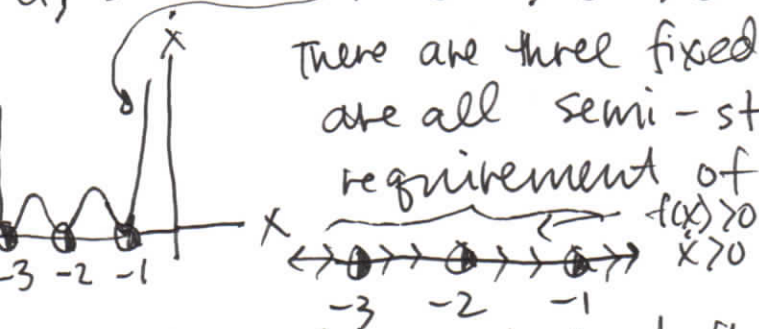 ẋ
There are three fixed
are all semi-st
requirement of
f(x)>0
ẋ>0
x
-3 -2 -1
-3 -2 -1